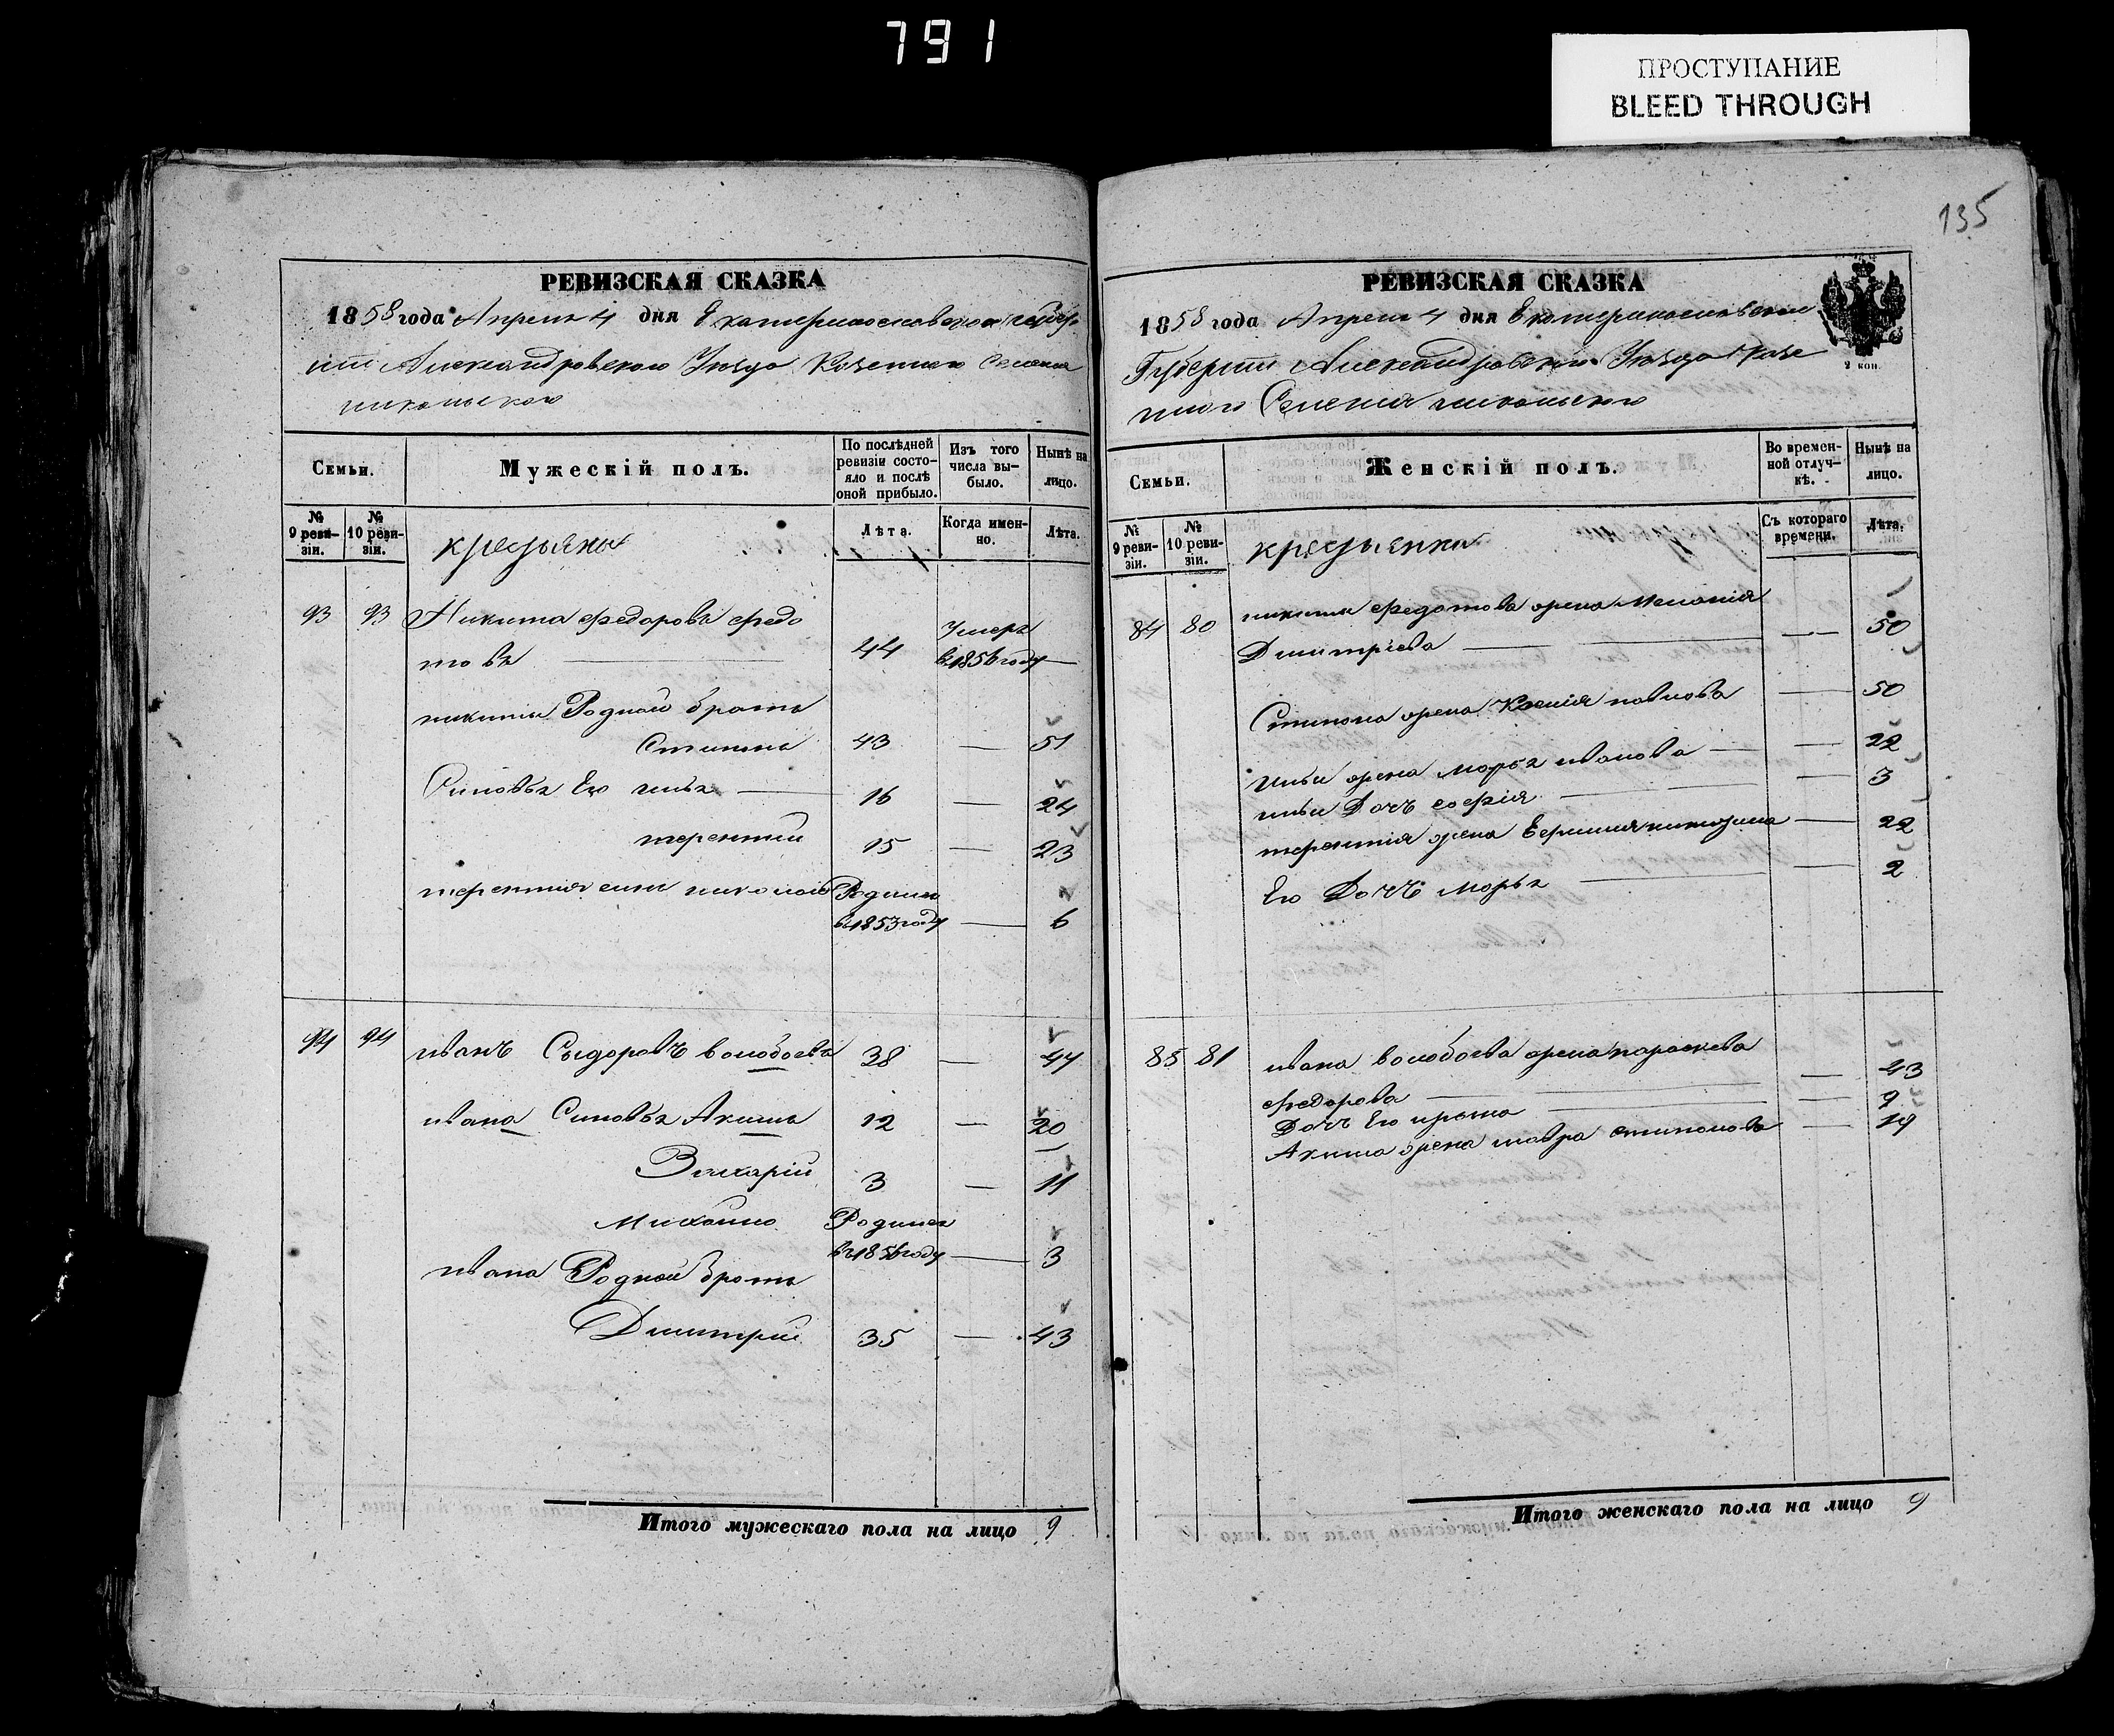 791
ПРОСТУПАНИЕ
BLEED THROUGH
135
РЕВИЗСКАЯ СКАЗКА
1858 года Апреля 4 дня Екатеринославской губер
нии Александровского Уезда Козенного Селения
никольского
Семьи.
Мужескій полъ.
По послѣдней
ревизіи состо-
яло и послѣ
оной прибыло.
Изъ того
числа вы-
было.
Нынѣ на
лицо.
№
9 реви-
зіи.
№
10 реви-
зіи.
крестьяны
Лѣта.
Когда имен-
но.
Лѣта.
93 93 Никита Федоровъ Федо
товъ 44 Умеръ в 1856 году
никиты Родной братъ
Степанъ 43 51
Синовья Его 16 24
терентий 15 23
терентия синъ николай Родился
в 1853 году 6
94 94 иванъ Сыдоровъ волобоевъ 38 44
ивана Синовья Акимъ 12 20
Захарій 3 11
Михайло Родился
въ 1856 году 3
ивана Родной братъ
Дмитрий 35 43
Итого мужескаго пола на лицо 9
РЕВИЗСКАЯ СКАЗКА
1858 года Апреля 4 дня Екатеринославской
Губернии Александровского Уезда Козе
нного Селения никольского
2 коп.
Семьи.
Женскій полъ.
Во времен-
ной отлуч-
кѣ.
Нынѣ на
лицо.
№
9 реви-
зіи.
№
10 реви-
зіи.
крестьянки
Съ котораго
времени.
Лѣта.
84 80 никиты Федотова жена Меланія
Дмитріева 50
Степана жена Ксенія павлова 50
жена Марья иванова 22
Дочъ софія 3
терентія жена никитина 22
Его Дочъ Марья 2
85 81 ивана волобоева жена параскева
Федорова 43
Дочъ Его 9
Акима жена степанова 19
Итого женскаго пола на лицо 9